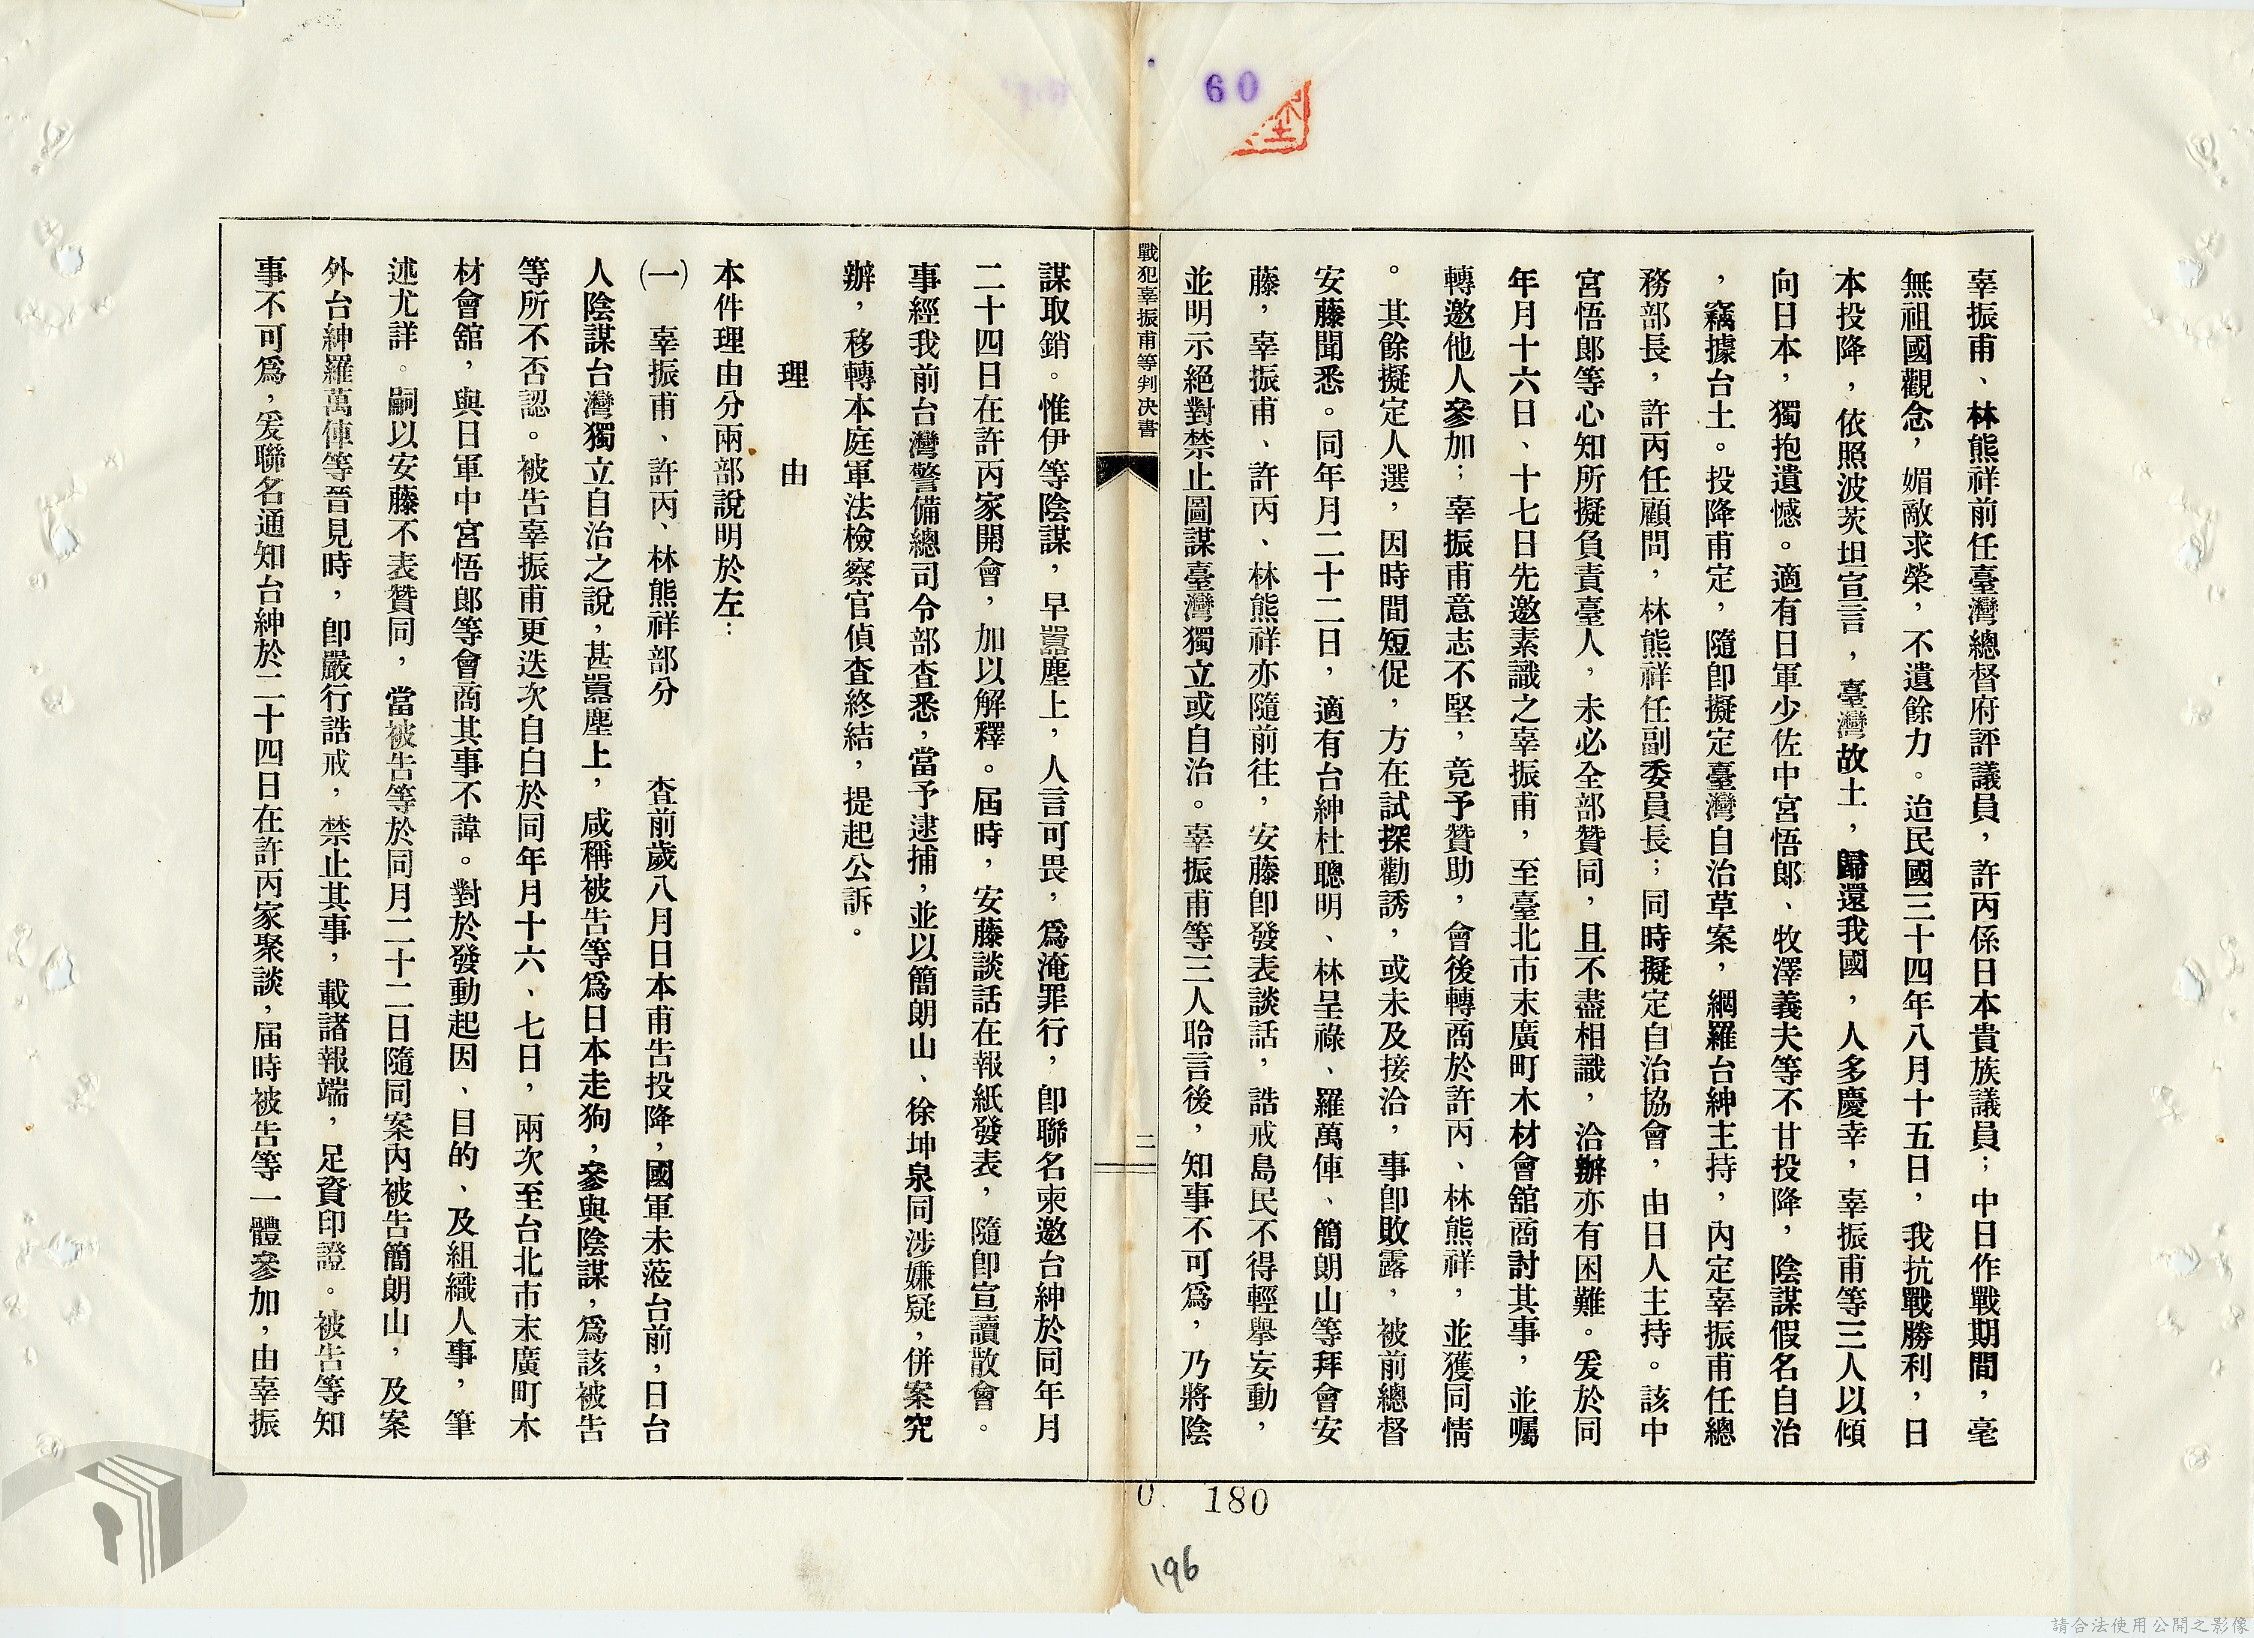 60
辜振甫、林熊祥前任臺灣總督府評議員，許丙係日本貴族議員；中日作戰期間，毫
無祖國觀念，媚敵求榮，不遺餘力。迨民國三十四年八月十五日，我抗戰勝利，日
本投降，依照波茨坦宣言，臺灣故土，歸還我國，人多慶幸，辜振甫等三人以傾
向日本，獨抱遺憾。適有日軍少佐中宮悟郎、牧澤義夫等不甘投降，陰謀假名自治
，竊據台土。投降甫定，隨卽擬定臺灣自治草案，網羅台紳主持，內定辜振甫任總
務部長，許丙任顧問，林熊祥任副委員長；同時擬定自治協會，由日人主持。該中
宮悟郎等心知所擬負責臺人，未必全部贊同，且不盡相識，洽辦亦有困難。爰於同
年月十六日、十七日先邀素識之辜振甫，至臺北市末廣町木材會舘商討其事，並囑
轉邀他人參加；辜振甫意志不堅，竟予贊助，會後轉商於許丙、林熊祥，並獲同情
。其餘擬定人選，因時間短促，方在試探勸誘，或未及接洽，事卽敗露，被前總督
安藤聞悉。同年月二十二日，適有台紳杜聰明、林呈祿、羅萬俥、簡朗山等拜會安
藤，辜振甫、許丙、林熊祥亦隨前往，安藤卽發表談話，誥戒島民不得輕舉妄動，
並明示絕對禁止圖謀臺灣獨立或自治。辜振甫等三人聆言後，知事不可爲，乃將陰
戰犯辜振甫等判决書
二
謀取銷。惟伊等陰謀，早囂塵上，人言可畏，爲淹罪行，卽聯名柬邀台紳於同年月
二十四日在許丙家開會，加以解釋。屆時，安藤談話在報紙發表，隨卽宣讀散會。
事經我前台灣警備總司令部查悉，當予逮捕，並以簡朗山、徐坤泉同涉嫌疑，併案究
辦，移轉本庭軍法檢察官偵查終結，提起公訴。
理　由
本件理由分兩部說明於左：
㈠　辜振甫、許丙、林熊祥部分　查前歲八月日本甫告投降，國軍未蒞台前，日台
人陰謀台灣獨立自治之說，甚囂塵上，咸稱被告等爲日本走狗，參與陰謀，爲該被告
等所不否認。被告辜振甫更迭次自白於同年月十六、七日，兩次至台北市末廣町木
材會舘，與日軍中宮悟郎等會商其事不諱。對於發動起因、目的、及組織人事，筆
述尤詳。嗣以安藤不表贊同，當被告等於同月二十二日隨同案內被告簡朗山，及案
外台紳羅萬俥等晉見時，卽嚴行誥戒，禁止其事，載諸報端，足資印證。被告等知
事不可爲，爰聯名通知台紳於二十四日在許丙家聚談，屆時被告等一體參加，由辜振
0
180
196
請合法使用公開之影像